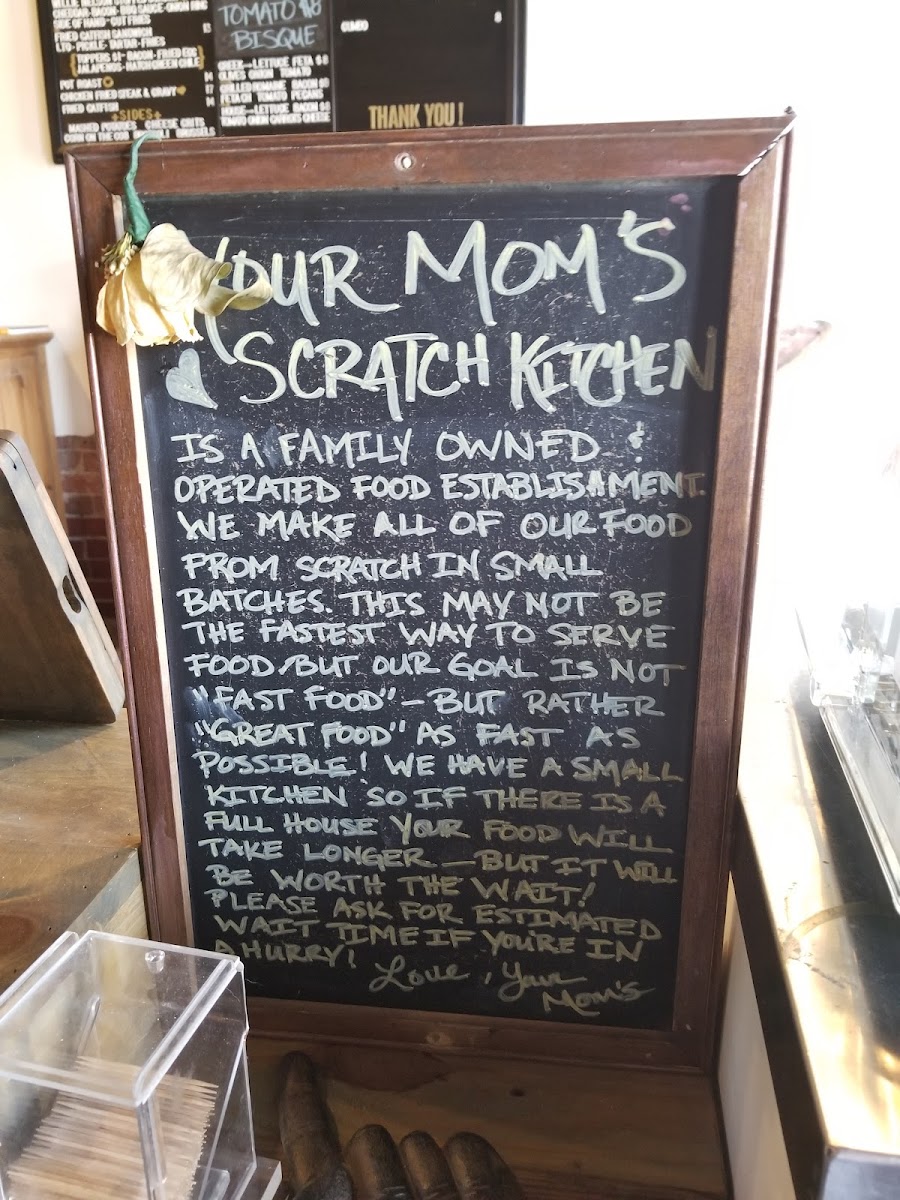 CHEDDAR-BACON-BBQ SAUCE-ONION RING
SIDE OF HAND-CUT FRIES
FRIED CATFISH SANDWICH
LTO-PICKLE-TARTAR-FRIES
TOPPERS $1-BACON-FRIED EGG
JALAPENOS-HATCH GREEN CHILE
POT ROAST
CHICKEN FRIED STEAK & GRAVY
FRIED CATFISH
SIDES
MASHED POTATOES CHEESE GRITS
CORN ON THE COB BRUSSELS
TOMATO $8
BISQUE
GREEK-LETTUCE FETA $8
OLIVES ONION TOMATO
GRILLED ROMAINE BACON
FETA TOMATO PECANS
HOUSE-LETTUCE BACON
TOMATO ONION CARROTS CHEESE
GUMBO 8
THANK YOU!
YOUR MOM'S
SCRATCH KITCHEN
IS A FAMILY OWNED &
OPERATED FOOD ESTABLISHMENT.
WE MAKE ALL OF OUR FOOD
FROM SCRATCH IN SMALL
BATCHES. THIS MAY NOT BE
THE FASTEST WAY TO SERVE
FOOD, BUT OUR GOAL IS NOT
"FAST FOOD" - BUT RATHER
"GREAT FOOD" AS FAST AS
POSSIBLE! WE HAVE A SMALL
KITCHEN SO IF THERE IS A
FULL HOUSE YOUR FOOD WILL
TAKE LONGER - BUT IT WILL
BE WORTH THE WAIT!
PLEASE ASK FOR ESTIMATED
WAIT TIME IF YOU'RE IN
A HURRY!
Love, Your
Mom's